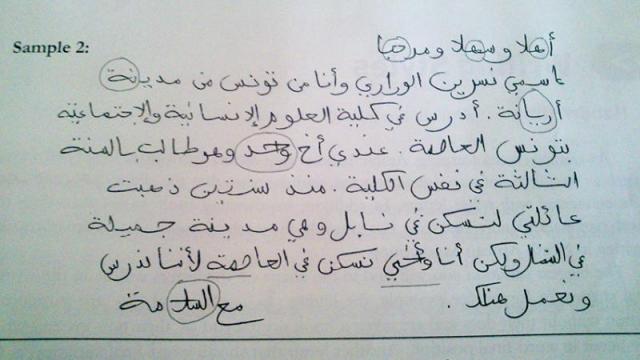 Sample 2:
أهلا وسهلا ومرحبا
اسمي نسرين الوراري وأنا من تونس من مدينة
أريانة. أدرس في كلية العلوم الإنسانية والإجتماعية
بتونس العاصمة. عندي أخ واحد وهو طالب بالسنة
الشالثة في نفس الكلية. منذ سنتين ذهبت
عائلتي لتسكن في نابل وهي مدينة جميلة
في الشمال ولكن أنا وأخي نسكن في العاصمة لأننا ندرس
ونعمل هناك.
مع السلامة